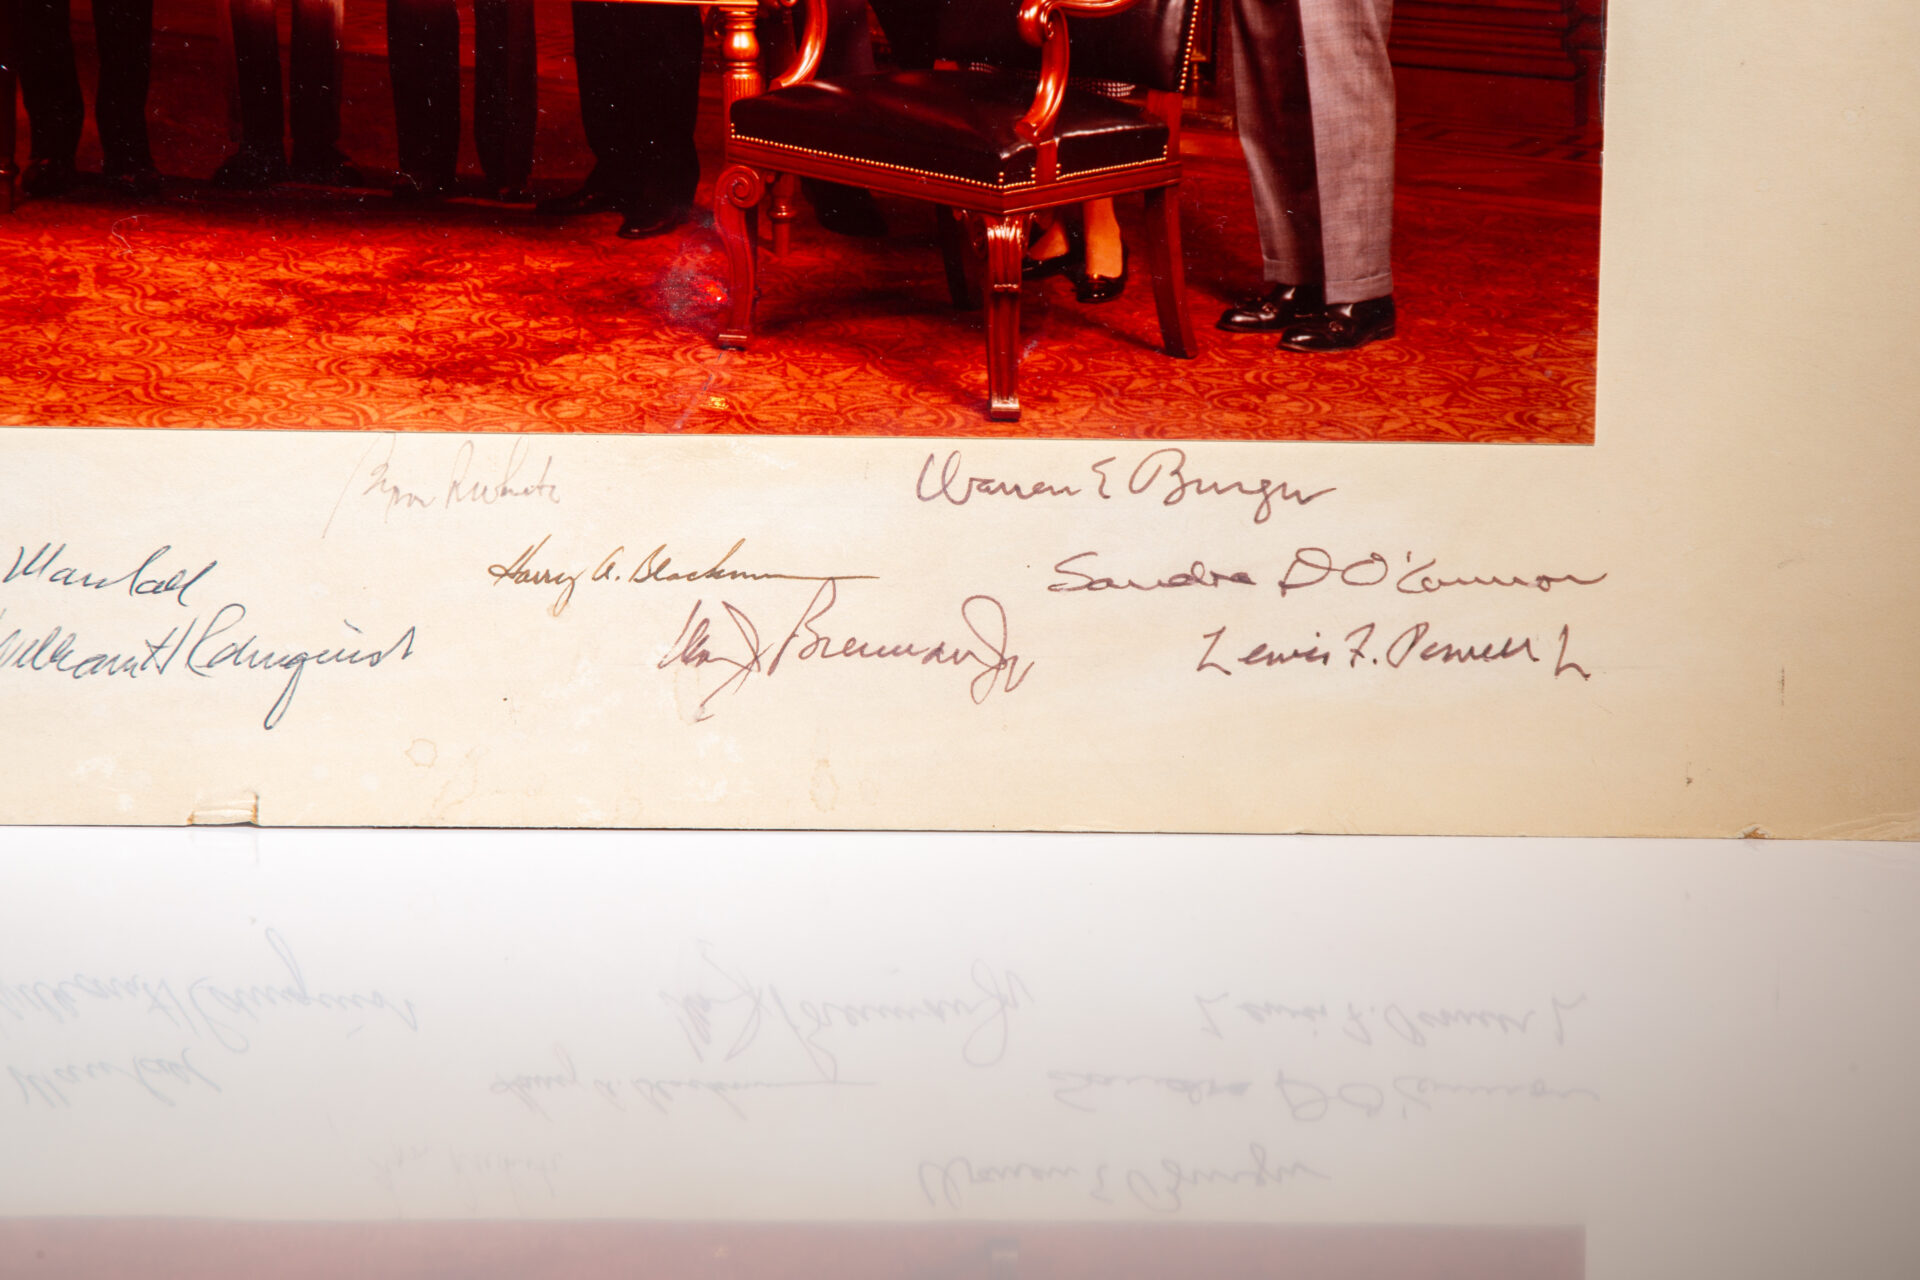 Byron R White Warren E Burger
Marshall Harry A. Blackmun Sandra D O'Connor
William H Rehnquist Wm J Brennan Jr Lewis F. Powell Jr